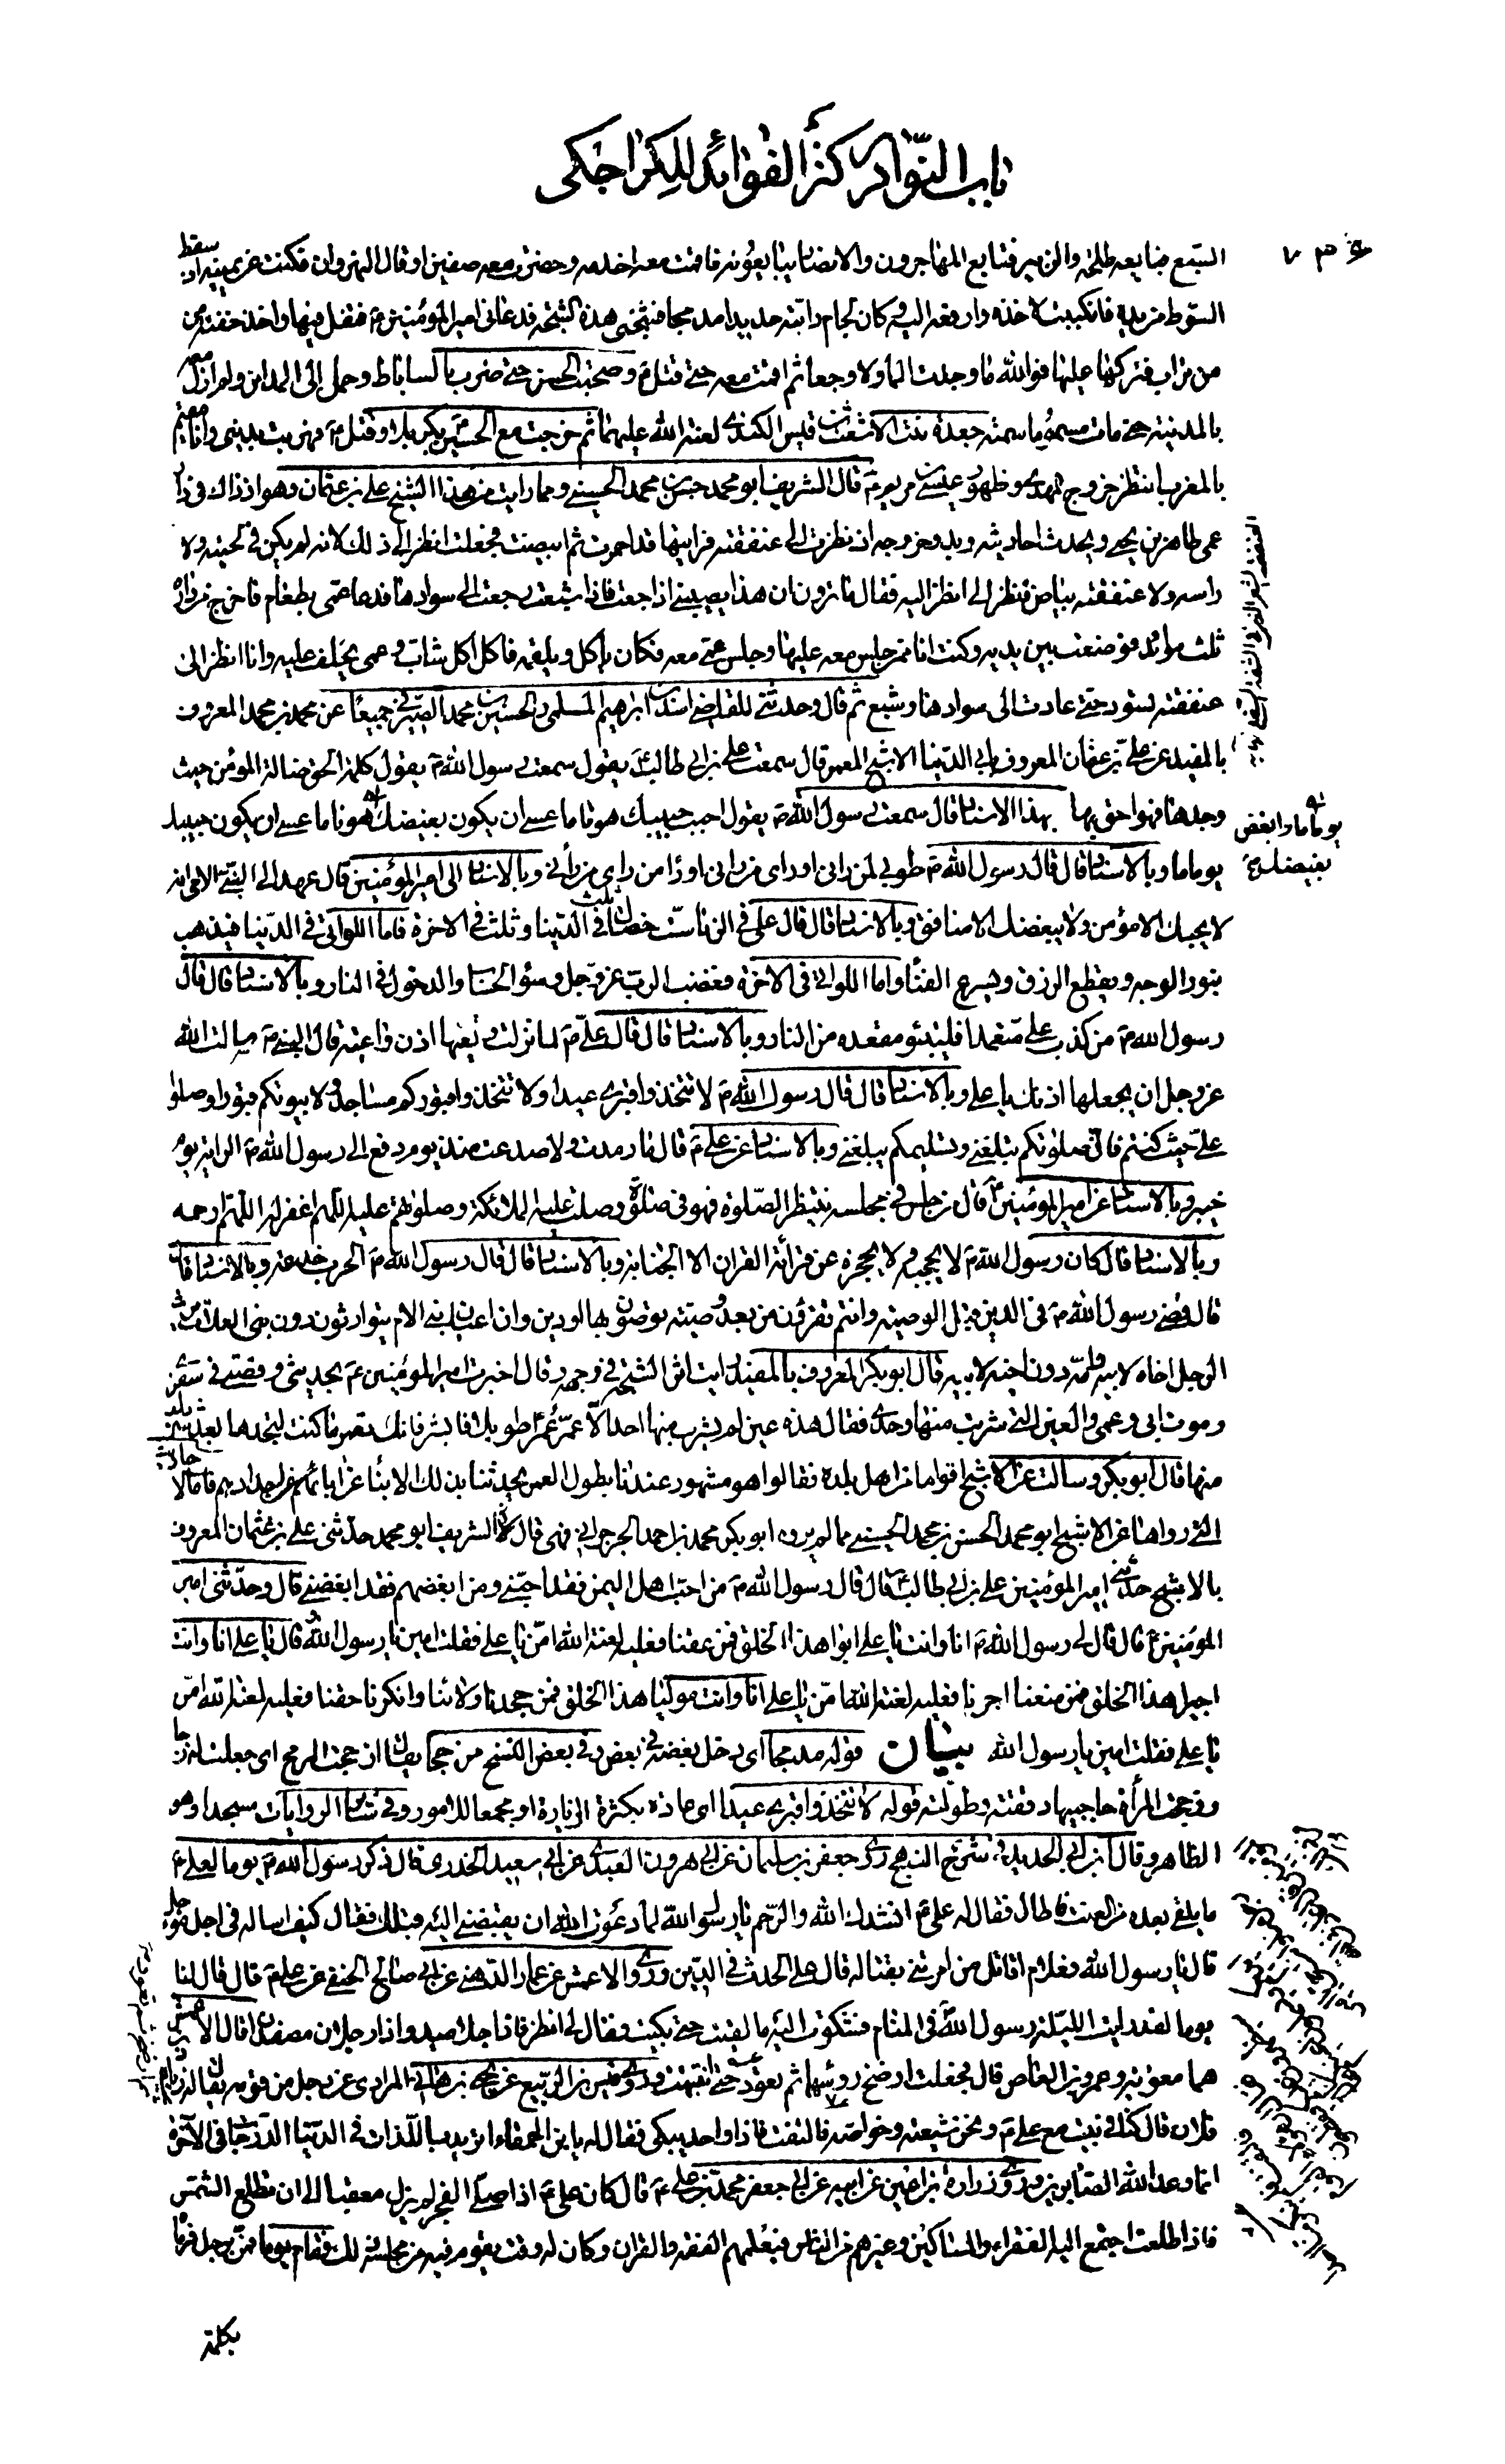 باب النوادر كنز الفوائد للكراجكي
٧٣٤
السبع فبايعه طلحة والزبير فتتابع المهاجرون والانصار يبايعونه فاقمت معه اخدمه وحضرت معه صفين او قال النهروان فكنت عن يمينه اذ سقط
السوط من يده فانكببت لاخذه وارفعه اليه وكان لجام دابته حديدا مدمجا فشجني هذه الشجة فدعاني امير المؤمنين ع فتفل فيها واخذ حفنة من
من تراب فتركها عليها فوالله ما وجدت الما ولا وجعا ثم اقمت معه حتى قتل ع وصحبت الحسن حتى ضرب بالساباط وحمل الى المدائن ولم ازل معه
بالمدينة حتى مات مسموما سمته جعدة بنت الاشعث بن قيس الكندي لعنة الله عليهما ثم خرجت مع الحسين ع بكربلا وقتل ع فهربت بديني وانا مقيم
بالمغرب انتظر خروج المهدي وظهور عيسى بن مريم ع قال الشريف ابو محمد حسن بن محمد الحسيني ومما رايت من هذا الشيخ علي بن عثمان وهو اذ ذاك في دار
عمي طاهر بن يحيى ويحدث احاديثه وبدو خروجه اذ نظرت الى عنفقته فرايتها قد احمرت ثم ابيضت فجعلت انظر الى ذلك لانه لم يكن في لحيته ولا
راسه ولا عنفقته بياض فنظر الي انظر اليه فقال ما ترون ان هذا يصيبني اذا جعت فاذا شبعت رجعت الى سوادها فدعا عمي بطعام فاخرج من داره
ثلث موائد فوضعت بين يديه وكنت انا ممن جلس معه عليها وجلس عمي معه فكان ياكل ويلقم فاكل اكل شاب وعمي يحلف عليه وانا انظر الى
عنفقته تسود حتى عادت الى سوادها وشبع ثم قال وحدثني القاضي اسد بن ابرهيم السلمي والحسين بن محمد الصيرفي جميعا عن محمد بن محمد المعروف
بالمفيد عن علي بن عثمان المعروف بابي الدنيا الاشج المعمر قال سمعت علي بن ابي طالب ع يقول سمعت رسول الله ص يقول كلمة الحق ضالة المؤمن حيث
وجدها فهو احق بها بهذا الاسناد قال سمعت رسول الله ص يقول احبب حبيبك هونا ما عسى ان يكون بغيضك هونا ما عسى ان يكون حبيبك
يوما ما وابغض
بغيضك
يوما ما وبالاسناد قال قال رسول الله ص طوبى لمن راني او راى من راني او راى من راى من رأني وبالاسناد الى امير المؤمنين قال عهد الي النبي الامي انه
لا يحبك الا مؤمن ولا يبغضك الا منافق وبالاسناد قال قال علي في الزنا ست خصال ثلث في الدنيا وثلث في الاخرة فاما اللواتي في الدنيا فيذهب
بنور الوجه ويقطع الرزق ويسرع الفناء واما اللواتي في الاخرة فغضب الرب عز وجل وسوء الحساب والدخول في النار وبالاسناد قال قال
رسول الله ص من كذب علي متعمدا فليتبوء مقعده من النار وبالاسناد قال قال علي ع لما نزلت وتعيها اذن واعية قال النبي ص سالت الله
عز وجل ان يجعلها اذنك يا علي وبالاسناد قال قال رسول الله ص لا تتخذوا قبري عيدا ولا تتخذوا قبوركم مساجد ولا بيوتكم قبورا وصلوا
علي حيث كنتم فان صلوتكم تبلغني وتسليمكم يبلغني وبالاسناد عن علي ع قال ما رمدت ولا صدعت منذ يوم دفع الي رسول الله ص الراية يوم
خيبر وبالاسناد عن امير المؤمنين ع قال من جلس في مجلسه ينتظر الصلوة فهو في صلوة وصلت عليه الملائكة وصلوتهم عليه اللهم اغفر له اللهم ارحمه
وبالاسناد قال كان رسول الله ص لا يحجبه ولا يحجزه عن قرائة القران الا الجنابة وبالاسناد قال قال رسول الله ص الحرب خدعة وبالاسناد قال
قال قضى رسول الله ص في الدين قبل الوصية وانتم تقرؤن من بعد وصية توصون بها او دين وان اعيان بني الام يتوارثون دون بني العلات يرث
الرجل اخاه لابيه وامه دون اخيه لابيه قال ابو بكر المعروف بالمفيد رايت اثر الشجة في وجهه وقال اخبرت امير المؤمنين ع بحديثي وقصتي في سفري
وموت ابي وعمي والعين التي شربت منها وحدي فقال هذه عين لم يشرب منها احد الا عمر عمرا طويلا فابشر فانك تعمر ما كنت لتجدها بعد شربك
منها قال ابو بكر وسالت عن الاشج اقواما من اهل بلده فقالوا هو مشهور عندنا بطول العمر يحدثنا بذلك الابناء عن ابائهم عن اجدادهم فاما الاحاديث
التي رواها عن الاشج ابو محمد الحسن بن محمد الحسيني مما لم يروه ابو بكر محمد بن احمد الجرجرائي فهي قال الشريف ابو محمد حدثني علي بن عثمان المعروف
بالاشج حدثني امير المؤمنين علي بن ابي طالب ع قال قال رسول الله ص من احب اهل اليمن فقد احبني ومن ابغضهم فقد ابغضني قال وحدثني امير
المؤمنين ع قال قال لي رسول الله ص انا وانت يا علي ابوا هذا الخلق فمن عقنا فعليه لعنة الله امن يا علي فقلت امين يا رسول الله قال يا علي انا وانت
اجيرا هذا الخلق فمن منعنا اجرنا فعليه لعنة الله امن يا علي انا وانت موليا هذا الخلق فمن جحدنا ولائنا وانكرنا حقنا فعليه لعنة الله امن
يا علي فقلت امين يا رسول الله بيان قوله مدمجا اي دخل بعضه في بعض وفي بعض النسخ من حجا يقال زججت الرمح اي جعلت له زجا
وزججت المرأة حاجبيها دققته وطولته قوله لا تتخذوا قبري عيدا اي عادة بكثرة الزيارة او مجمعا للامور وفي سائر الروايات مسجدا وهو
الظاهر وقال ابن ابي الحديد في شرح النهج روى جعفر بن سليمان عن ابي هرون العبدي عن ابي سعيد الخدري قال ذكر رسول الله ص يوما لعلي ع
ما يلقى بعده من العنت فاطال فقال له علي ع انشدك الله والرحم يا رسول الله لما دعوت الله ان يقبضني اليه قبلك فقال كيف اساله في اجل مؤجل
قال يا رسول الله فعلام اقاتل من امرتني بقتاله قال على الحدث في الدين وروى الاعمش عن عمار الدهني عن ابي صالح الحنفي عن علي ع قال قال لنا
يوما لقد رايت الليلة رسول الله ص في المنام فشكوت اليه ما لقيت حتى بكيت فقال لي انظر فاذا جلاميد واذا رجلان مصفدان قال الاعمش
هما معوية وعمرو بن العاص قال فجعلت ارضخ رؤسهما ثم تعود حتى انتبهت وروى قيس بن الربيع عن يحيى بن هاني المرادي عن رجل من قومه يقال له زياد بن
فلان قال كنا في بيت مع علي ع ونحن شيعته وخواصه فالتفت فاذا واحد يبكي فقال له يا ابن الحمقاء اتريد باللذات في الدنيا الدرجات في الآخرة
انما وعد الله الصابرين وروى زرارة بن اعين عن ابيه عن ابي جعفر محمد بن علي ع قال كان علي ع اذا صلى الفجر لم يزل معقبا الى ان تطلع الشمس
فاذا طلعت اجتمع اليه الفقراء والمساكين وغيرهم من الناس فيعلمهم الفقه والقران وكان له وقت يقوم فيه من مجلسه ذلك فقام يوما فمر برجل فرماه
بكلمة